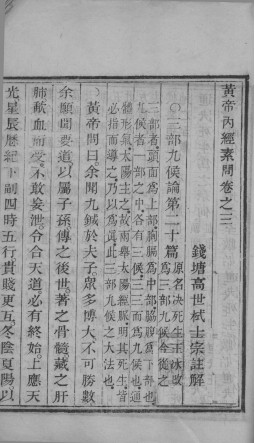 黃帝內經素問卷之三
錢塘高世栻士宗註解
○三部九候論第二十篇
原名决死生王冰改
為三部九候今從之
三部者頭面為上部胸膈為中部脇腹為下部也
九候者一部之中各有三候三三而為九候也通
體形氣太陽主之故兩舉太陽經脈明其死生皆
必指而導之乃以為真此三部九候之大法也
○黃帝問曰余聞九鍼於夫子眾多博大不可勝數
余願聞要道以屬子孫傳之後世著之骨髓藏之肝
肺歃血而受不敢妄泄令合天道必有終始上應天
光星辰歷紀下副四時五行貴賤更互冬陰夏陽以